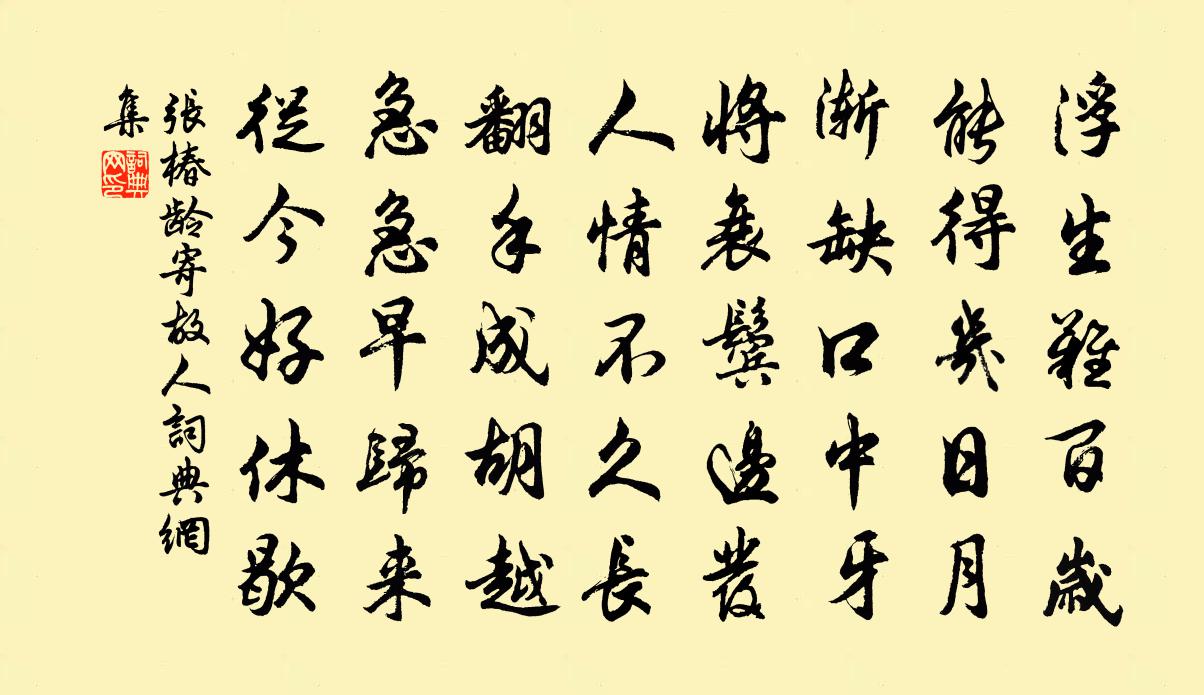 浮生難百歲
能得幾日月
漸缺口中牙
將衰鬢邊發
人情不久長
翻手成胡越
急急早歸来
從今好休歇
張椿龄寄故人詞典網
集
詞典
网印